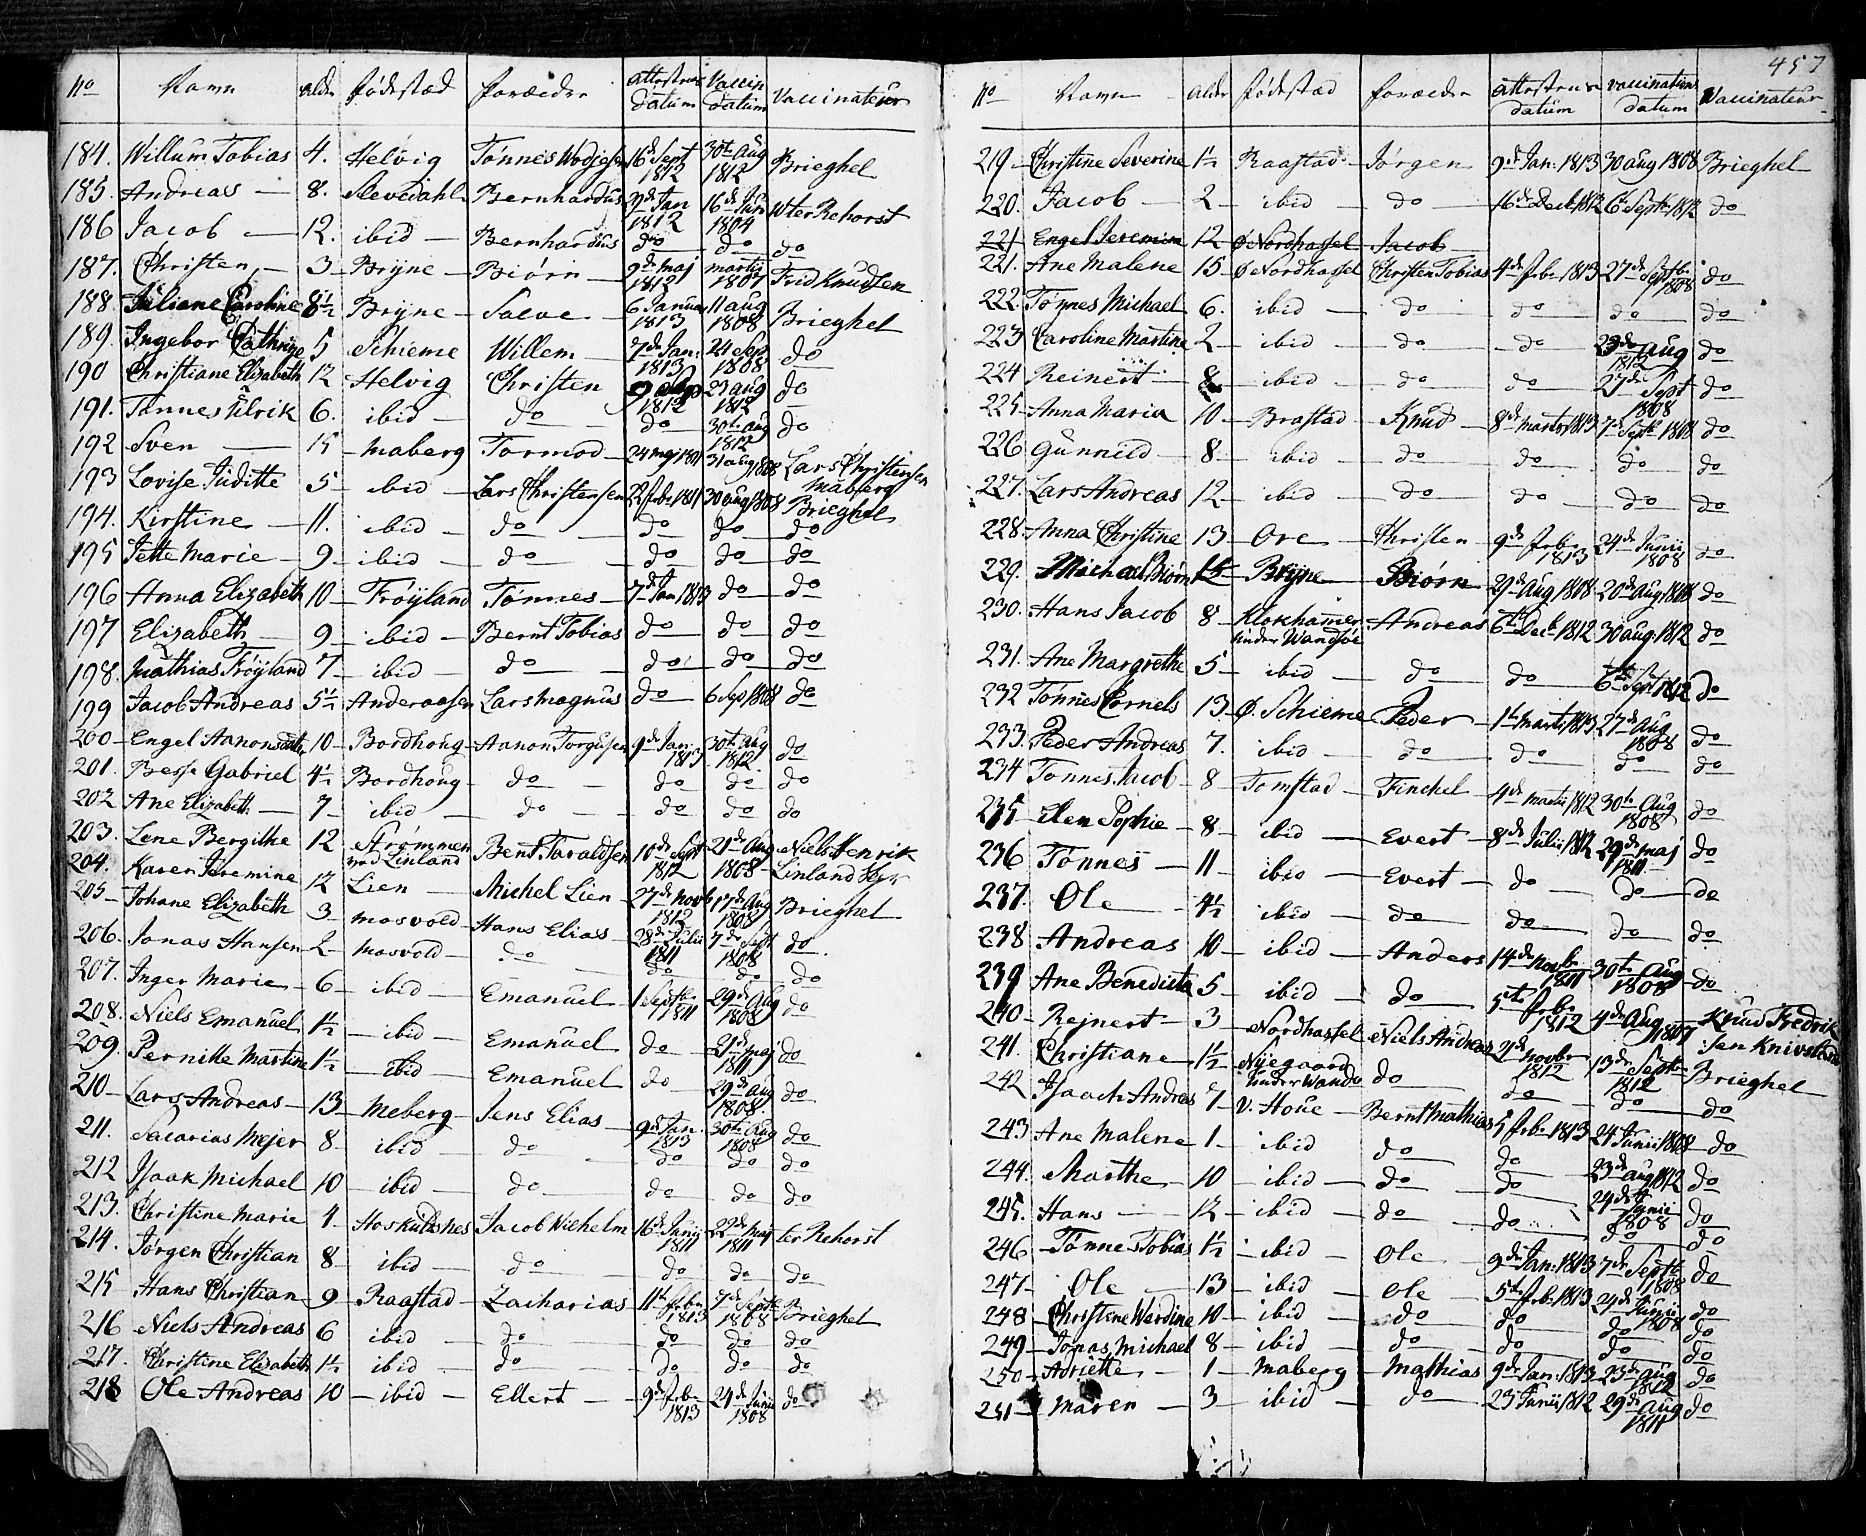 No Navn alder fødestæd forældre attestens datum Vaccin datum Vaccinateur
184. Willum Tobias 4. Helvig Tønnes 16de Sept 1812 30te Aug 1812 Brieghel
185. Andreas 8. Slevdahl Bernhardus Jan 1812 16de Jun 1804 ter Rehorst
186 Jacob 12. ibid Bernhardus do do do
187. Christen 3 Bryne Biørn 9de maj 1812 martii 1807 Frid Knudsen
188. Juliane Caroline 8½ Bryne Salve 6 Januar 1813 11 aug 1808 Brieghel
189. Ingebor Cathrine 5 Schieme Willem 7de Jan: 1813 24 Sep 1808 do
190 Christiane Elizabeth 12 Helvig Christen 9 1812 29 aug 1812 do
191. Tønnes Ulrik 6. ibid do do 30te aug 1812 do
192 Sven 15 maberg Tormod 24 maj 1811 31 aug 1808 Lars Christensen Maberg
193 Lovise Juditte 5 ibid Lars Christensen 22 febr 1811 30 aug 1808 Brieghel
194. Kirstine 11. ibid do do do do
195 Jette Marie 9 ibid do do do do
196 Anna Elizabeth 10 Frøyland Tønnes 7de Jan 1813 do do
197 Elizabeth 9 ibid Bernt Tobias do do do
198. Mathias Frøyland 7 ibid do do do do
199 Jacob Andreas 5½ Anderaasen Lars magnus do 6 Sep 1808 do
200 Engel Aanonsdatter 10 Bordhoug Aanon Torgusen 9de Jan 1813 30te Aug 1812 do
201. Besse Gabriel 4½ Bordhoug do do do do
202 Ane Elizabeth 7 ibid do do do do
203. Lene Bergithe 12 Strømmen ved Linland Bent Taraldsen 10de Sept 1812 21de Aug 1808 Niels Henrik Linland
204. Karen Jeremine 12 Lien Michel Lien 27de Novb 1812 17de Aug 1808 Brieghel
205 Johane Elizabeth 3 mosvold Hans Elias 28de Julii 1811 7de Sept 1808 do
206. Jonas Hansen 2 mosvold do do do do
207. Inger Marie 6 ibid Emanuel 1 Septbr 1811 29de Aug 1808 do
208. Niels Emanuel 1½ ibid Emanuel do 21de maj 1811 do
209. Pernille Martine 1½ ibid Emanuel do 29de aug 1808 do
210 Lars Andreas 13 Meberg Jens Elias 9de Jan. 1813 30te Aug 1808 do
211. Sacarias Mejer 8 ibid do do do do
212 Isaak Michael 10 ibid do do do do
213. Christine Marie 4 Hoskuldsnes Jacob Wilhelm 16de Junii 1811 22de Maj 1811 ter Rehorst
214. Jørgen Christian 8 ibid do do do do
215 Hans Christian 9 Raastad Zacharias 11te febr 1813 7de Septbr 1808 Brieghel
216 Niels Andreas 6 ibid do do do do
217. Christine Elizabeth 1½ ibid do do do do
218 Ole Andreas 10 ibid Ellert 9de febr 1813 24de Junii 1808 do
457
No Navn alder fødestæd forældre attestens datum vaccinations datum Vaccinateur
219 Christine Severine 1½ Raastad Jørgen 9de Jan: 1813 30 aug 1808 Brieghel
220. Jacob 2 ibid do 16de Decb. 1812 6te Septbr 1812 do
221 Engel Jeremine 12 Ø Nordhassel Jacob
221. Ane Malene 15 Ø Nordhassel Christen Tobias 4de febr 1813 27de Septbr 1808 do
222. Tønnes Michael 6. ibid do do do do
223 Caroline Martine 2 ibid do do 23de aug 1812 do
224 Reinert 8 ibid do do 27de Sept 1808 do
225 Anna Maria 10 Brastad Knud 8de marts 1813 7de Septbr 1808 do
226 Gunnild 8 ibid do do do do
227. Lars Andreas 12 ibid do do do do
228. Anna Christine 13 Ore Christen 9de febr 1813 24de Junii 1808 do
229. Michael Biørn 15 Bryne Biørn 29de Aug 1808 20de Aug 1808 do
230. Hans Jacob 8 Klokhamer under Wandsøe Andreas 6te Decb. 1812 30 aug. 1812 do
231. Ane Margrethe 5 ibid do do 6te Sept 1812 do
232 Tønnes Cornels 13 Ø. Schieme Peder 1te marts 1813 27de Aug 1808 do
233. Peder Andreas 7. ibid do do do do
234 Tønnes Jacob 8 Tomstad Finchel 4de martii 1812 30te Aug 1808 do
235 Elen Sophie 8 ibid Evert 8de Julii 1812 29de maj 1811 do
236 Tønnes 11 ibid Evert do do do
237. Ole 4½ ibid do do do do
238 Andreas 10 ibid Anders 14de Novbr 1811 30te Aug 1808 do
239 Ane Benedicta 5 ibid do 5te febr 1812 4de Aug 1807 Knud Fredriksen Knivstad
240 Rejnert 3 Nordhassel Niels Andreas 21de Novbr 1812 13de Septbr 1812 Brieghel
241. Christiane 1½ Nyegaard under Wandø do do do do
242 Isaach Andreas 7 V. Houe Bernt Mathias 5 febr 1813 24 Junii 1808 do
243 Ane Malene 1 ibid do do 23de aug 1812 do
244. Marthe 10 ibid do do 24de Junii 1808 do
245. Hans 12 ibid do do do do
246 Tønnes Tobias 1½ ibid Ole 9de Jan: 1813 7de Septbr 1808 do
247 Ole 13 ibid Ole 5te febr 1813 24de Junii 1808 do
248 Christine Wardine 10 ibid do do do do
249 Jonas Michael 8 ibid do do do do
250 Adriette 1 maberg Mathias 9de Jan: 1813 23de aug 1812 do
251 Maren 3 ibid do 23 Junii 1812 29de Aug 1811 do